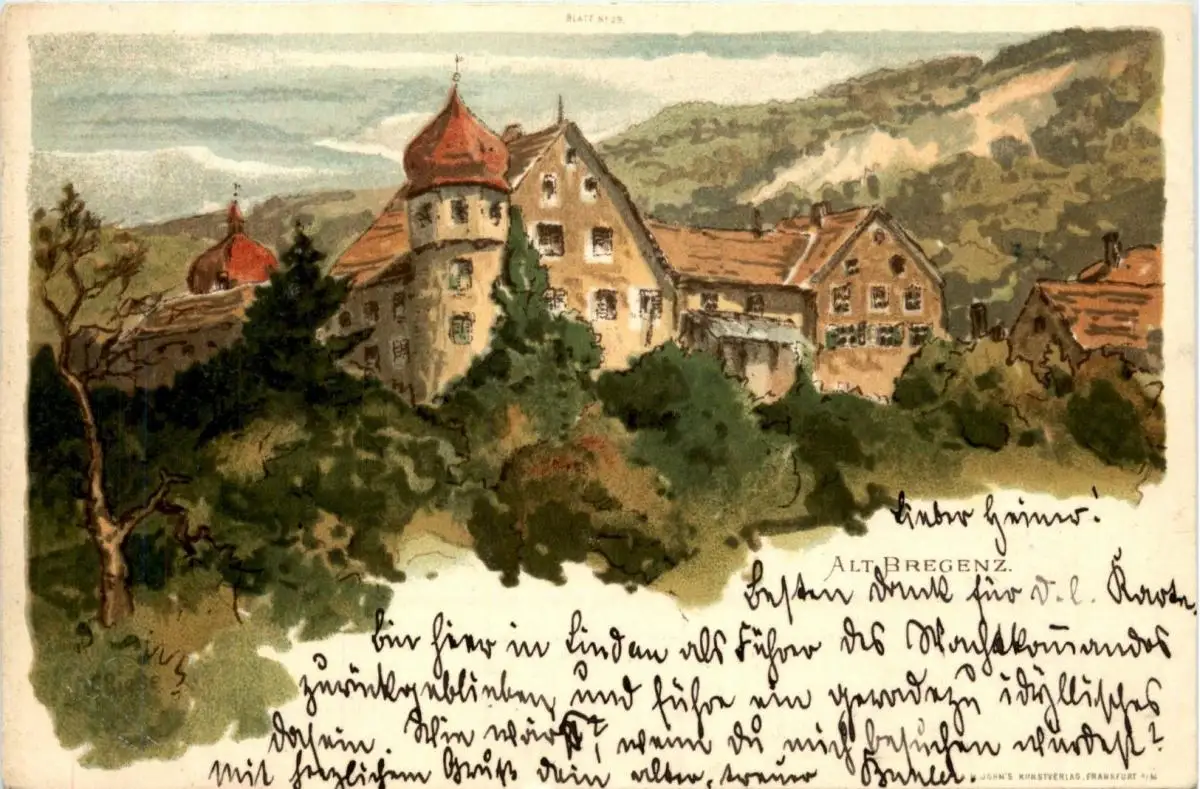 BLATT Nº 29.
Lieber Heiner!
ALT BREGENZ.
Besten Dank für d. l. Karte.
Bin hier in Lindau als Führer des Wachtkom̄andos
zurückgeblieben und führe ein geradezu idyllisches
Dasein. Wie wär's, wenn du mich besuchen würdest?
Mit herzlichem Gruß dein alter, treuer
JOHN'S KUNSTVERLAG, FRANKFURT a/M